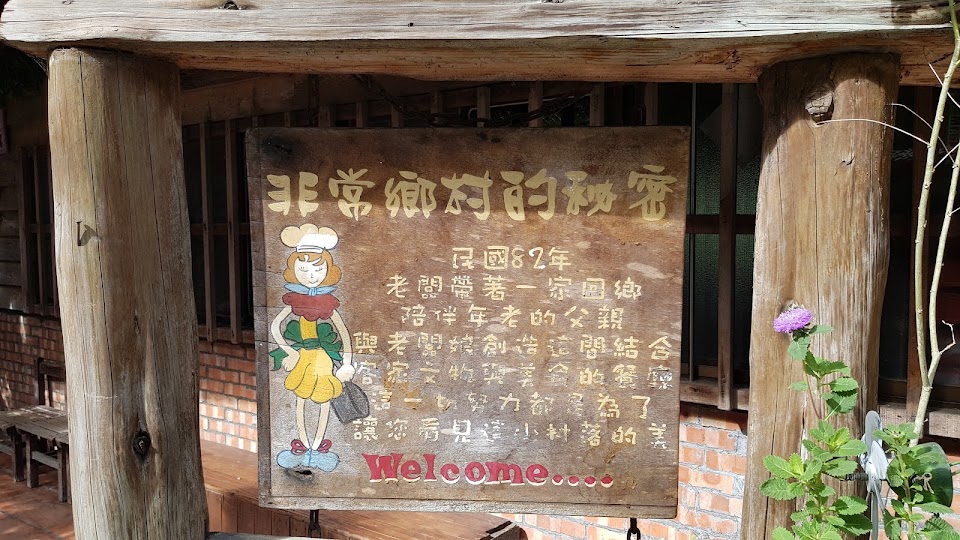 非常鄉村的秘密
民國82年
老闆帶著一家回鄉
陪伴年老的父親
與老闆娘創造這間結合
客家文物與美食的餐廳
這一切努力都是為了
讓您看見這小村落的美
Welcome....